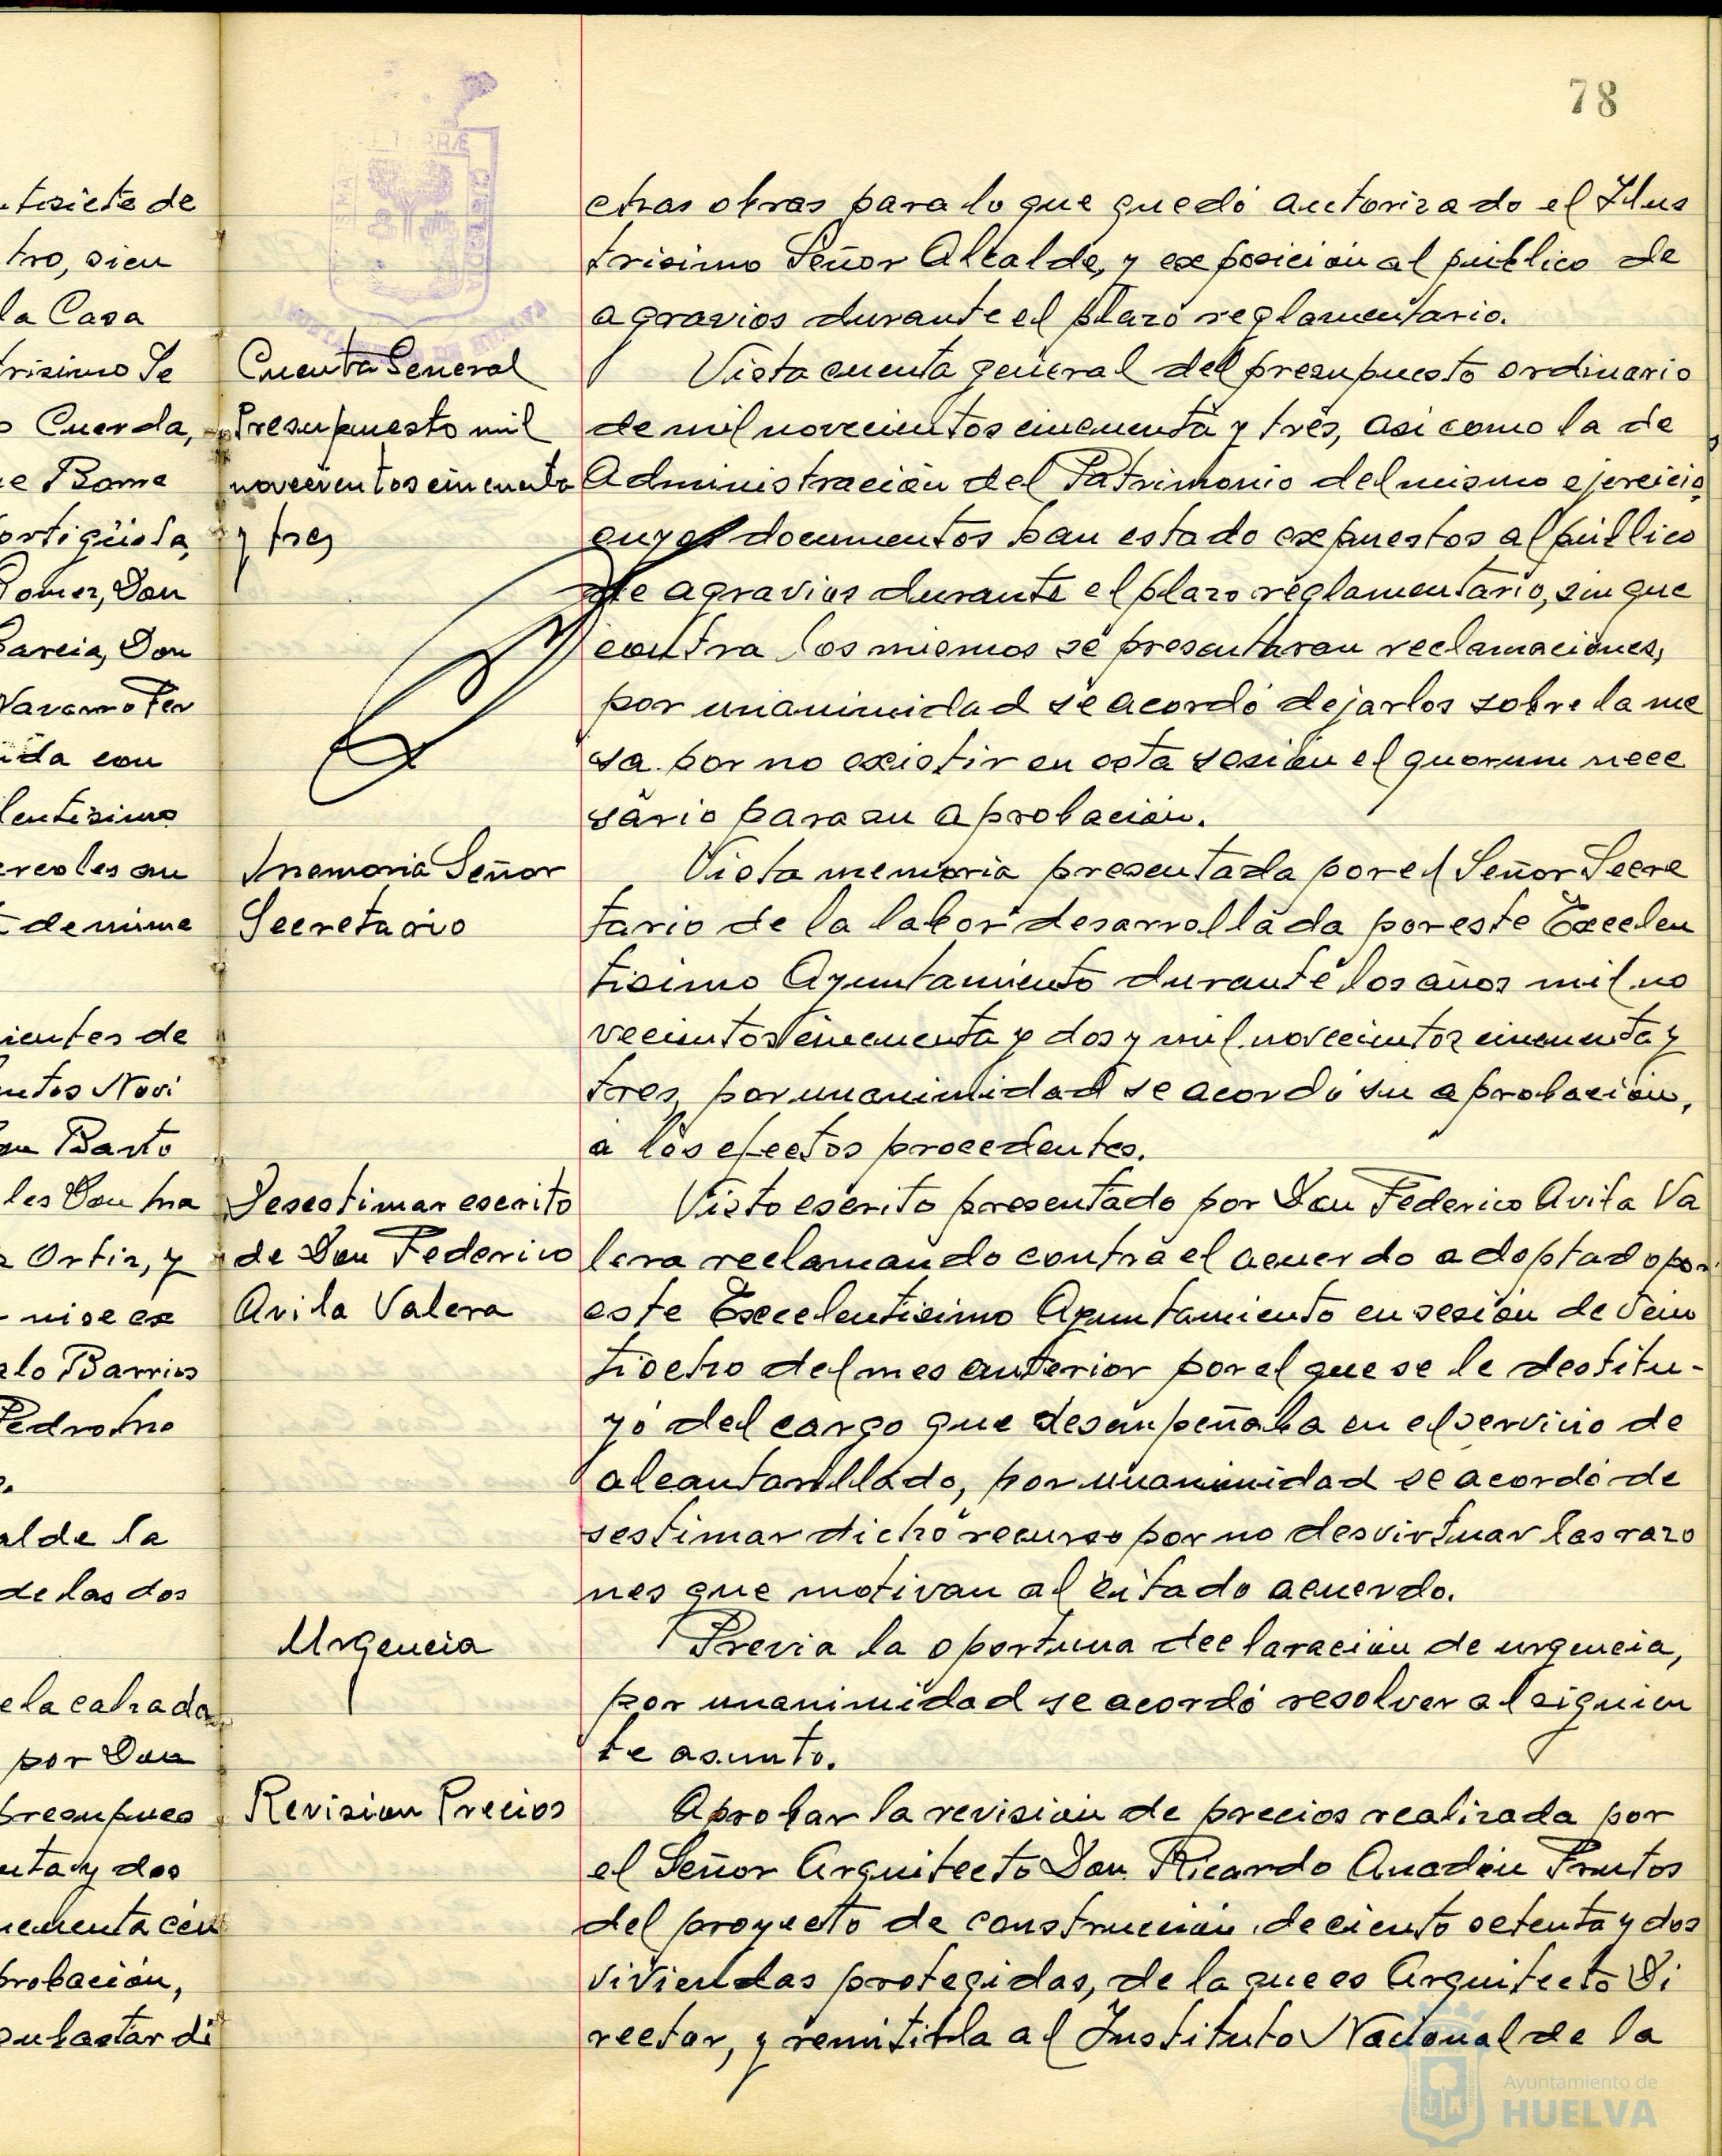 78
tisiete de
tro, sien
la Casa
trisimo Se
o Cuerda,
e Bome
ortigüela,
Gomez, Don
Garcia, Don
Navarro Fer
ida con
lentisimo
ercoles an
t de nume
ientes de
ntos Novi
an Barto
les Don Ma
z Ortiz, y
nise ex
alo Barrios
Pedro Mo
alde la
de las dos
e la calzada
por Don
presupues
nta y dos
ncuenta cén
probación,
subastar di
Cuenta General
Presupuesto mil
novecientos cincuenta
y tres
Memoria Señor
Secretario
Desestimar escrito
de Don Federico
Avila Valera
Urgencia
Revision Precios
chas obras para lo que quedó autorizado el Ilus
trisimo Señor Alcalde, y exposición al público de
agravios durante el plazo reglamentario.
Vista cuenta general del presupuesto ordinario
de mil novecientos cincuenta y tres, asi como la de
Administración del Patrimonio del mismo ejercicio,
cuyos documentos han estado expuestos al público
de agravios durante el plazo reglamentario, sin que
contra los mismos se presentaran reclamaciones,
por unanimidad se acordó dejarlos sobre la me
sa por no existir en esta sesión el quorum nece
sario para su aprobación.
Vista memoria presentada por el Señor Secre
tario de la labor desarrollada por este Excelen
tisimo Ayuntamiento durante los años mil no
vecientos cincuenta y dos y mil novecientos cincuenta y
tres, por unanimidad se acordó su aprobación,
a los efectos procedentes.
Visto escrito presentado por Don Federico Avila Va
lera reclamando contra el acuerdo adoptado por
este Excelentisimo Ayuntamiento en sesión de vein
tiocho del mes anterior por el que se le destitu-
yó del cargo que desempeñaba en el servicio de
alcantarillado, por unanimidad se acordó de
sestimar dicho recurso por no desvirtuar las razo
nes que motivan al citado acuerdo.
Previa la oportuna declaración de urgencia,
por unanimidad se acordó resolver al siguien
te asunto.
Aprobar la revisión de precios realizada por
el Señor Arquitecto Don Ricardo Anadón Frutos
del proyecto de construcción de ciento setenta y dos
viviendas protegidas, de la que es Arquitecto Di
rector, y remitirla al Instituto Nacional de la
Ayuntamiento de
HUELVA